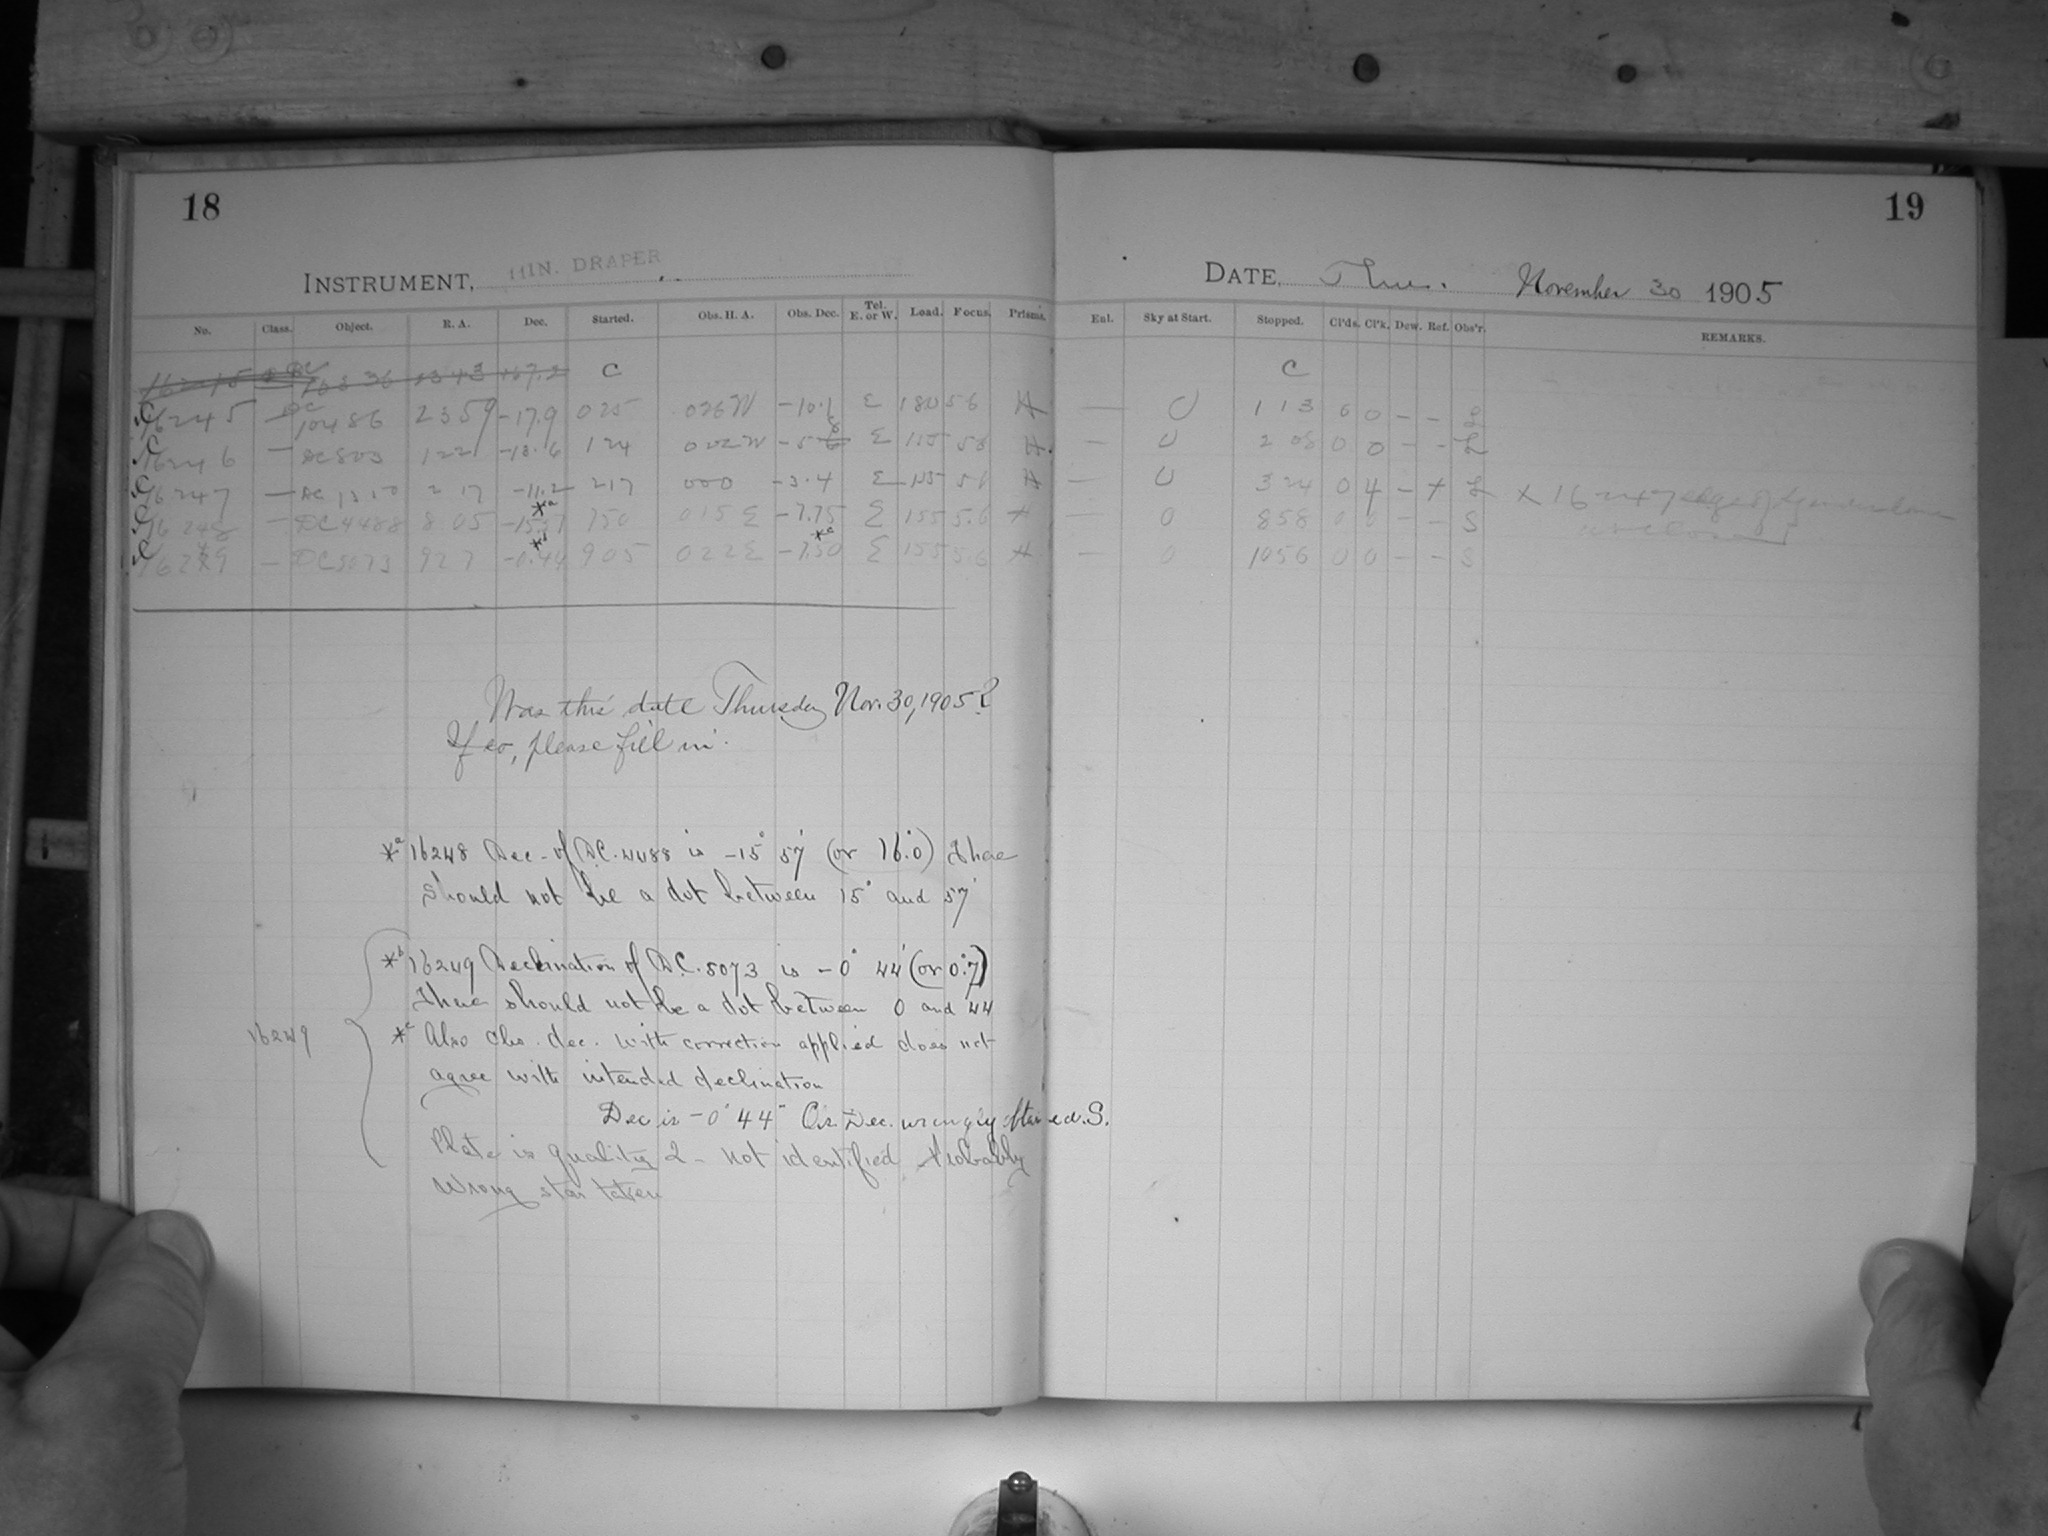 18
19
INSTRUMENT, 11 IN. DRAPER
DATE, Thur. November 30 1905
No. Class. Object. R. A. Dec. Started. Obs. H. A. Obs. Dec. Tel. E. or W. Load. Focus. Prisms. Enl. Sky at Start. Stopped. Cl'ds. Cl'k. Dew. Ref. Obs'r. REMARKS.
C C
C 16245 — DC 10486 23 59 -17.9 0 25 0 26 W -10.1 E 180 56 A — 0 1 13 0 0 - - L
C 16246 — DC 803 1 22 1 24 0 02 W E 115 56 A — 0 2 08 0 0 - - L
C 16247 — DC 1310 2 17 -11.2 2 17 0 00 -3.4 E 56 A — 0 3 24 0 4 - + L X 16247 edge of
C 16248 — DC 4488 8 05 -15.57 *a 7 50 0 15 E -7.75 E 155 5.6 A — 0 8 58 0 0 - - S
C 16249 — DC 5073 9 27 -0.44 *b 9 05 0 22 E -7.50 *c E 155 5.6 A — 0 10 56 0 0 - - S
Was this date Thursday Nov. 30, 1905?
If so, please fill in.
*a 16248 Dec. of D.C. 4488 is -15° 57' (or 16.°0) There
should not be a dot between 15° and 57'
*b 16249 Declination of D.C. 5073 is -0° 44' (or 0.°7)
There should not be a dot between 0 and 44
16249
*c Also Obs. dec. with correction applied does not
agree with intended declination
Dec is -0° 44' Obs. Dec. wrongly S.
Plate is quality 2 - not identified Probably
wrong star taken